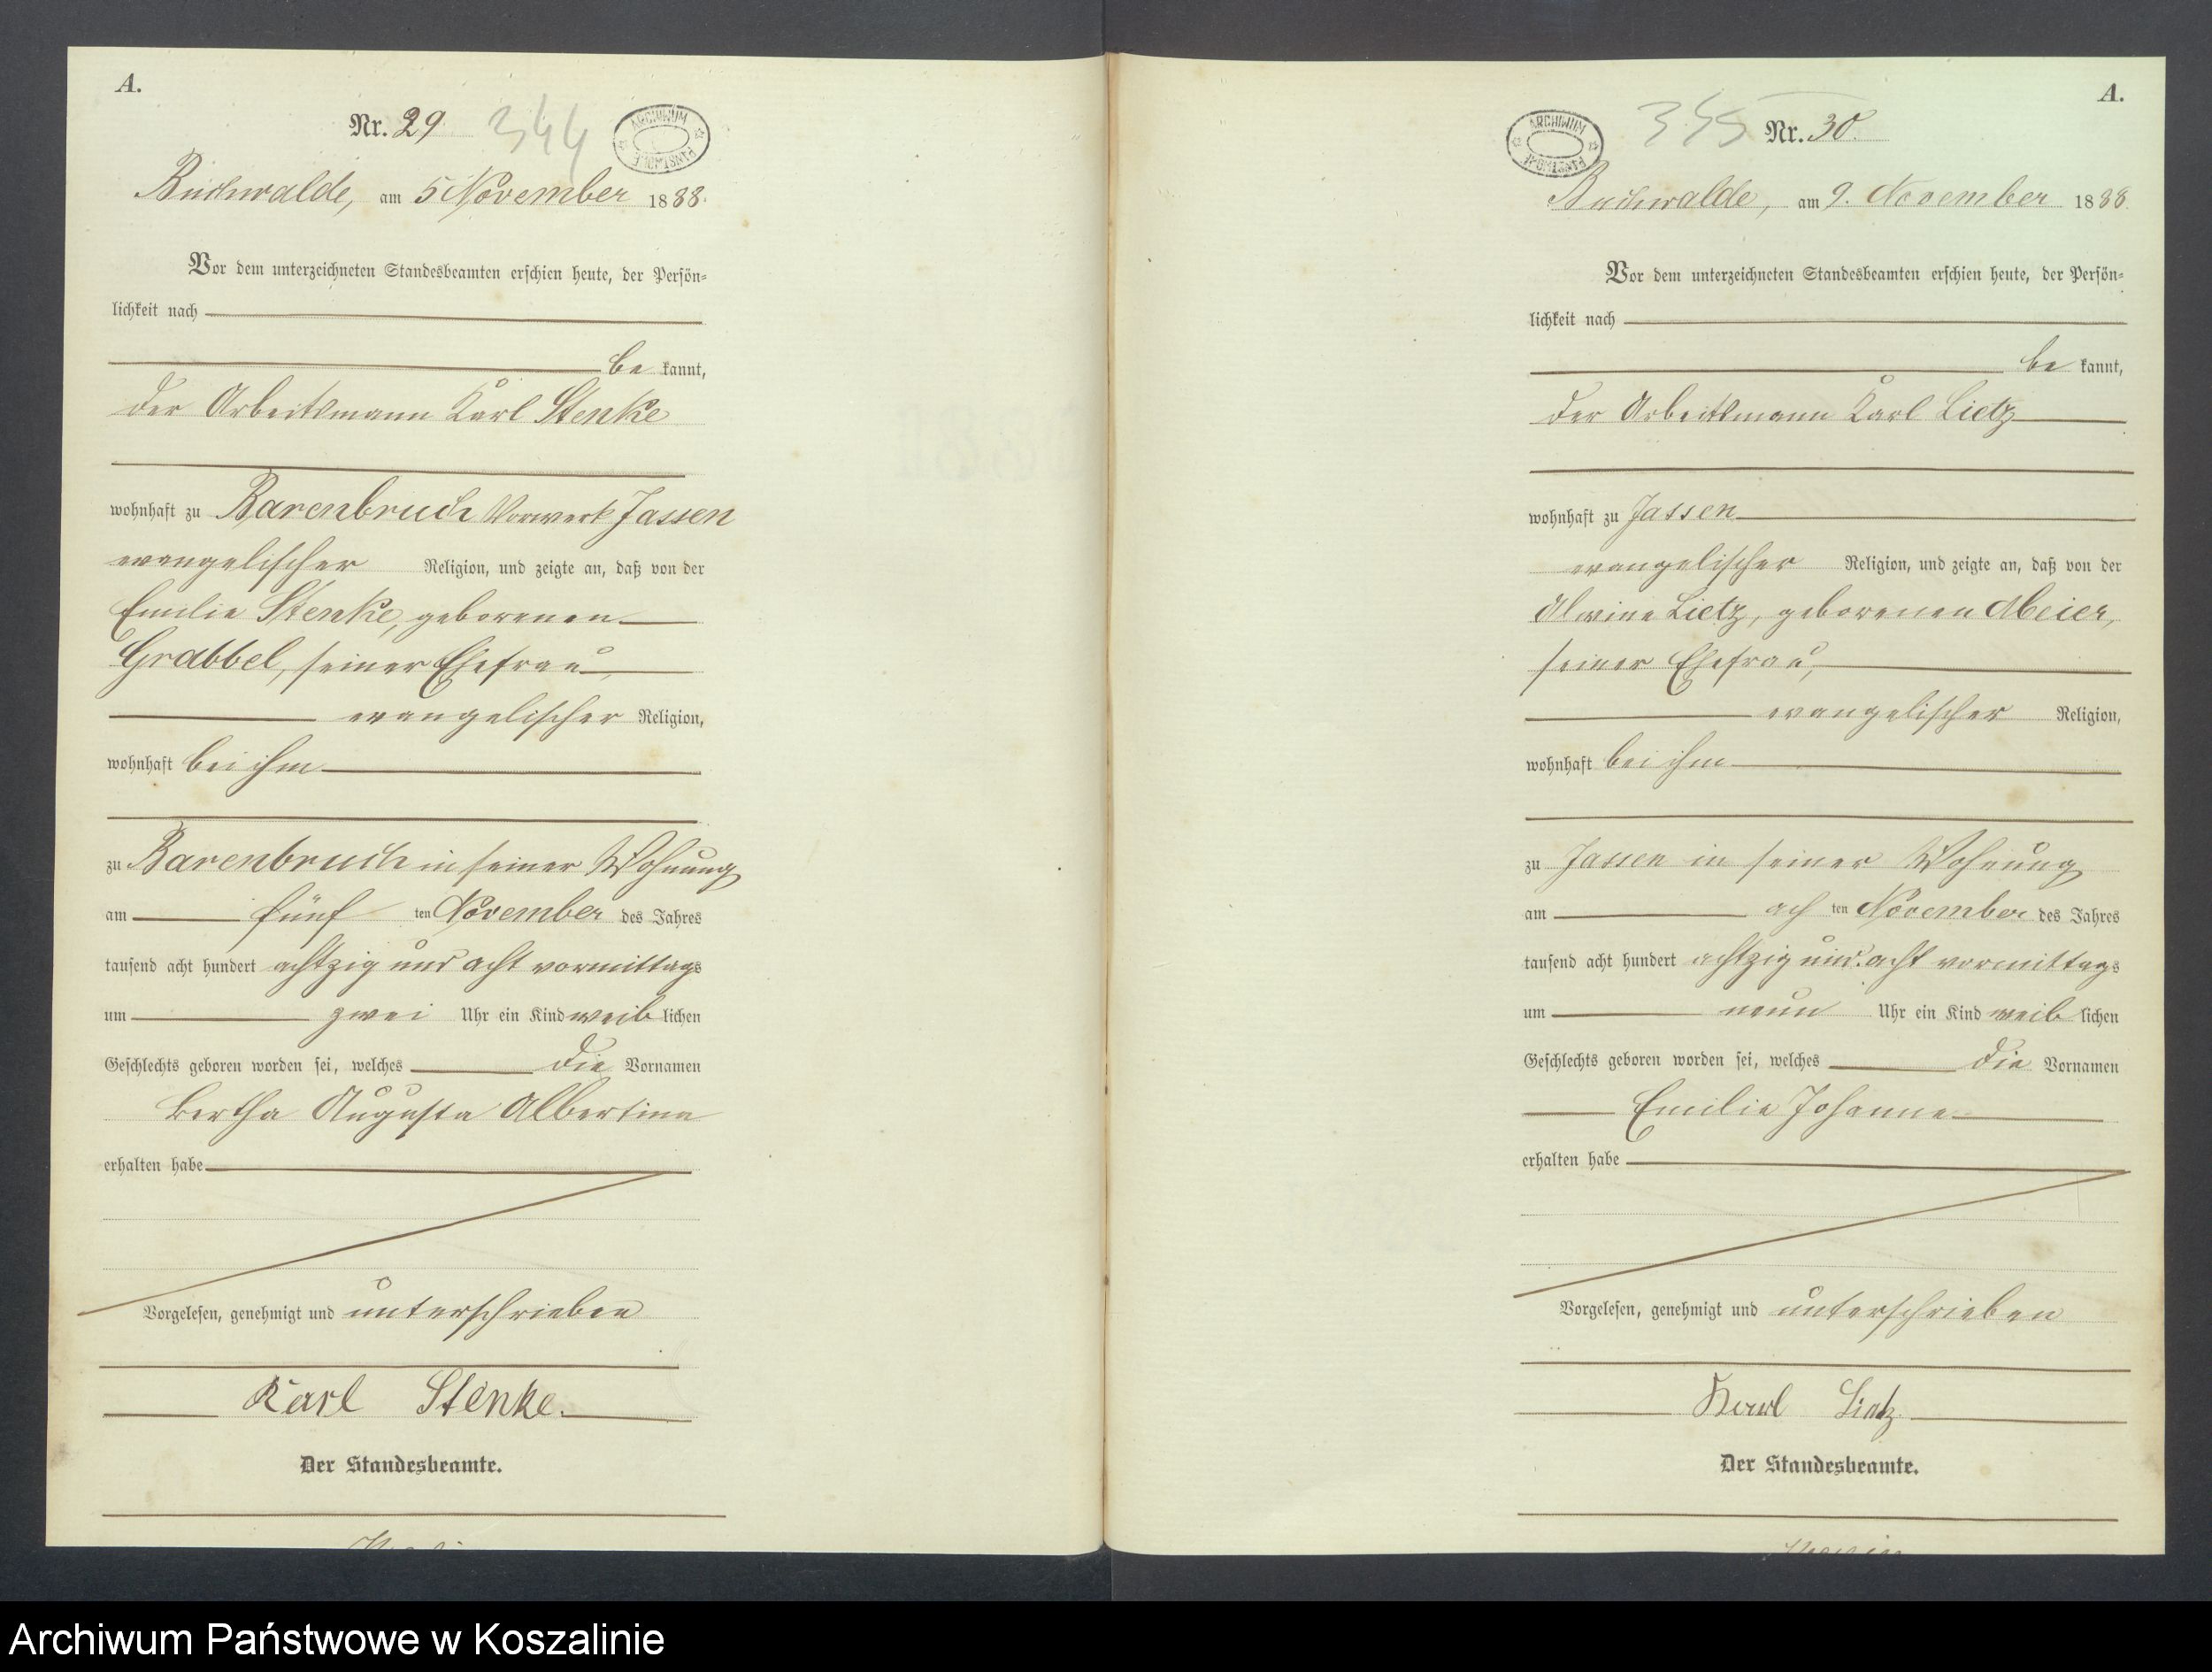 A.
Nr. 29
344
ARCHIWUM PAŃSTWOWE
Buchwalde, am 5 November 1888.
Vor dem unterzeichneten Standesbeamten erschien heute, der Persön=
lichkeit nach
be kannt,
der Arbeitsmann Karl Stenke
wohnhaft zu Barenbruch Vorwerk Jassen
evangelischer Religion, und zeigte an, daß von der
Emilie Stenke, geborenen
Grabbel, seiner Ehefrau
evangelischer Religion,
wohnhaft bei ihm
zu Barenbruch in seiner Wohnung
am fünf ten November des Jahres
tausend acht hundert achtzig und acht vormittags
um zwei Uhr ein Kind weib lichen
Geschlechts geboren worden sei, welches die Vornamen
Bertha Augusta Albertine
erhalten habe
Vorgelesen, genehmigt und unterschrieben
Karl Stenke.
Der Standesbeamte.
A.
ARCHIWUM PAŃSTWOWE
345
Nr. 30.
Buchwalde, am 9. November 1888
Vor dem unterzeichneten Standesbeamten erschien heute, der Persön=
lichkeit nach
be kannt,
der Arbeitsmann Karl Lietz
wohnhaft zu Jassen
evangelischer Religion, und zeigte an, daß von der
Alwine Lietz, geborenen Meier,
seiner Ehefrau,
evangelischer Religion,
wohnhaft bei ihm
zu Jassen in seiner Wohnung
am ach ten November des Jahres
tausend acht hundert achtzig und acht vormittags
um neun Uhr ein Kind weib lichen
Geschlechts geboren worden sei, welches die Vornamen
Emilie Johanne
erhalten habe
Vorgelesen, genehmigt und unterschrieben
Karl Lietz
Der Standesbeamte.
Archiwum Państwowe w Koszalinie